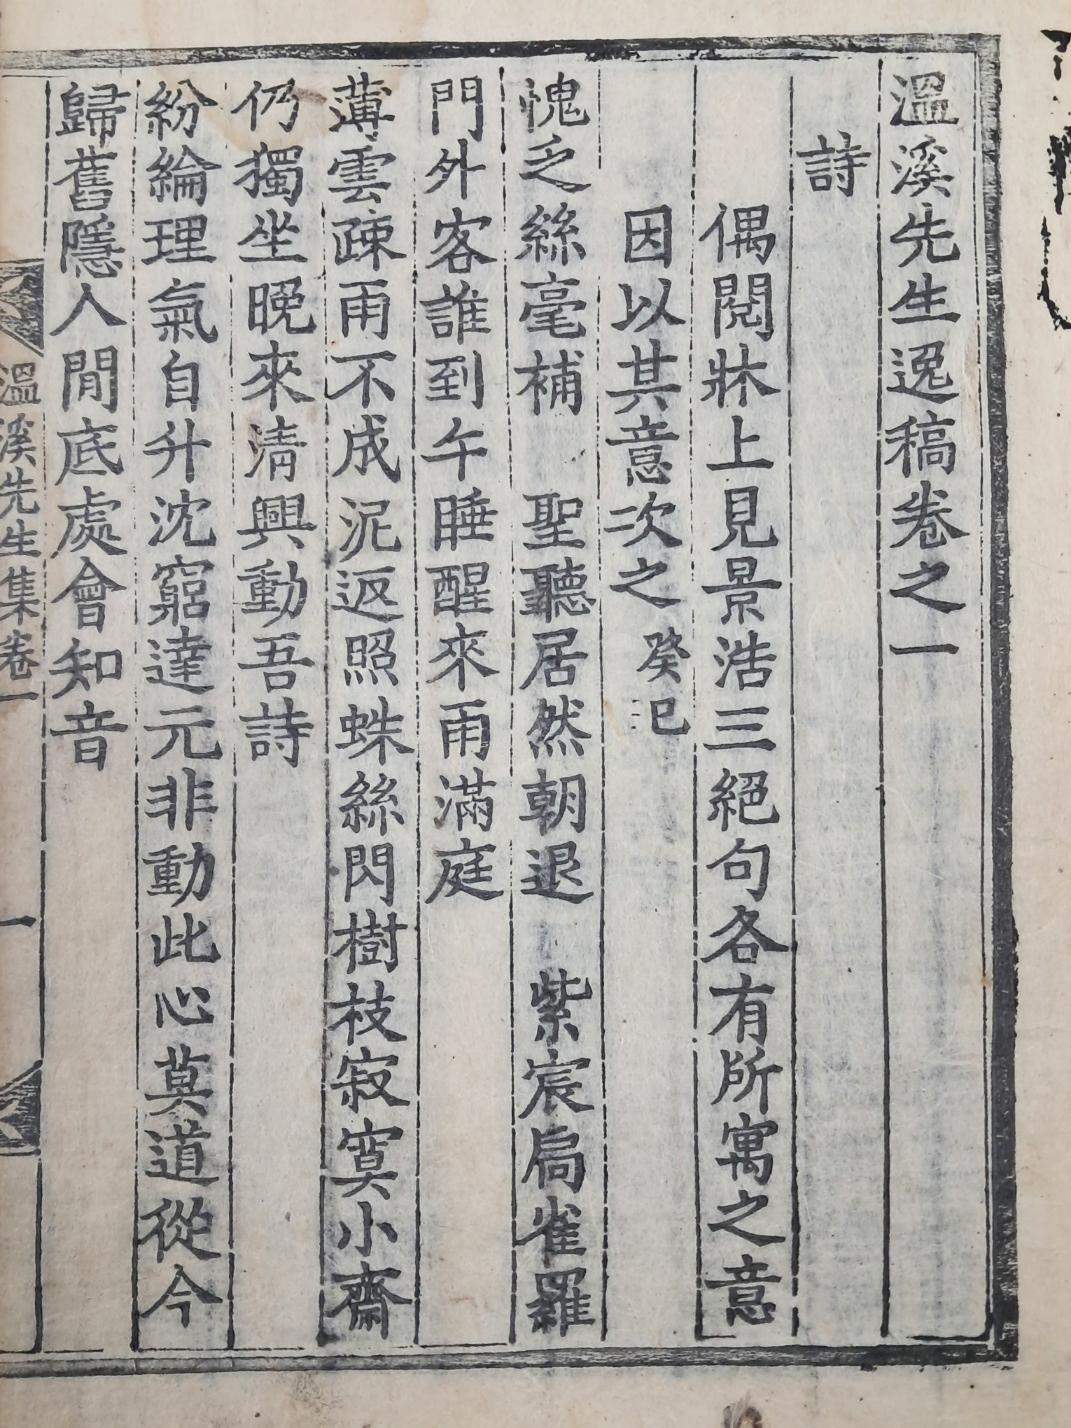 溫溪先生逸稿卷之一
詩
偶閱牀上見景浩三絕句各有所寓之意
因以其意次之 癸巳
愧乏絲毫補 聖聽居然朝退 紫宸扃雀羅
門外客誰到午睡醒來雨滿庭
薄雲疎雨不成泥返照蛛絲閃樹枝寂寞小齋
仍獨坐晩來淸興動吾詩
紛綸理氣自升沈窮達元非動此心莫道從今
歸舊隱人間底處會知音
溫溪先生集卷一
一